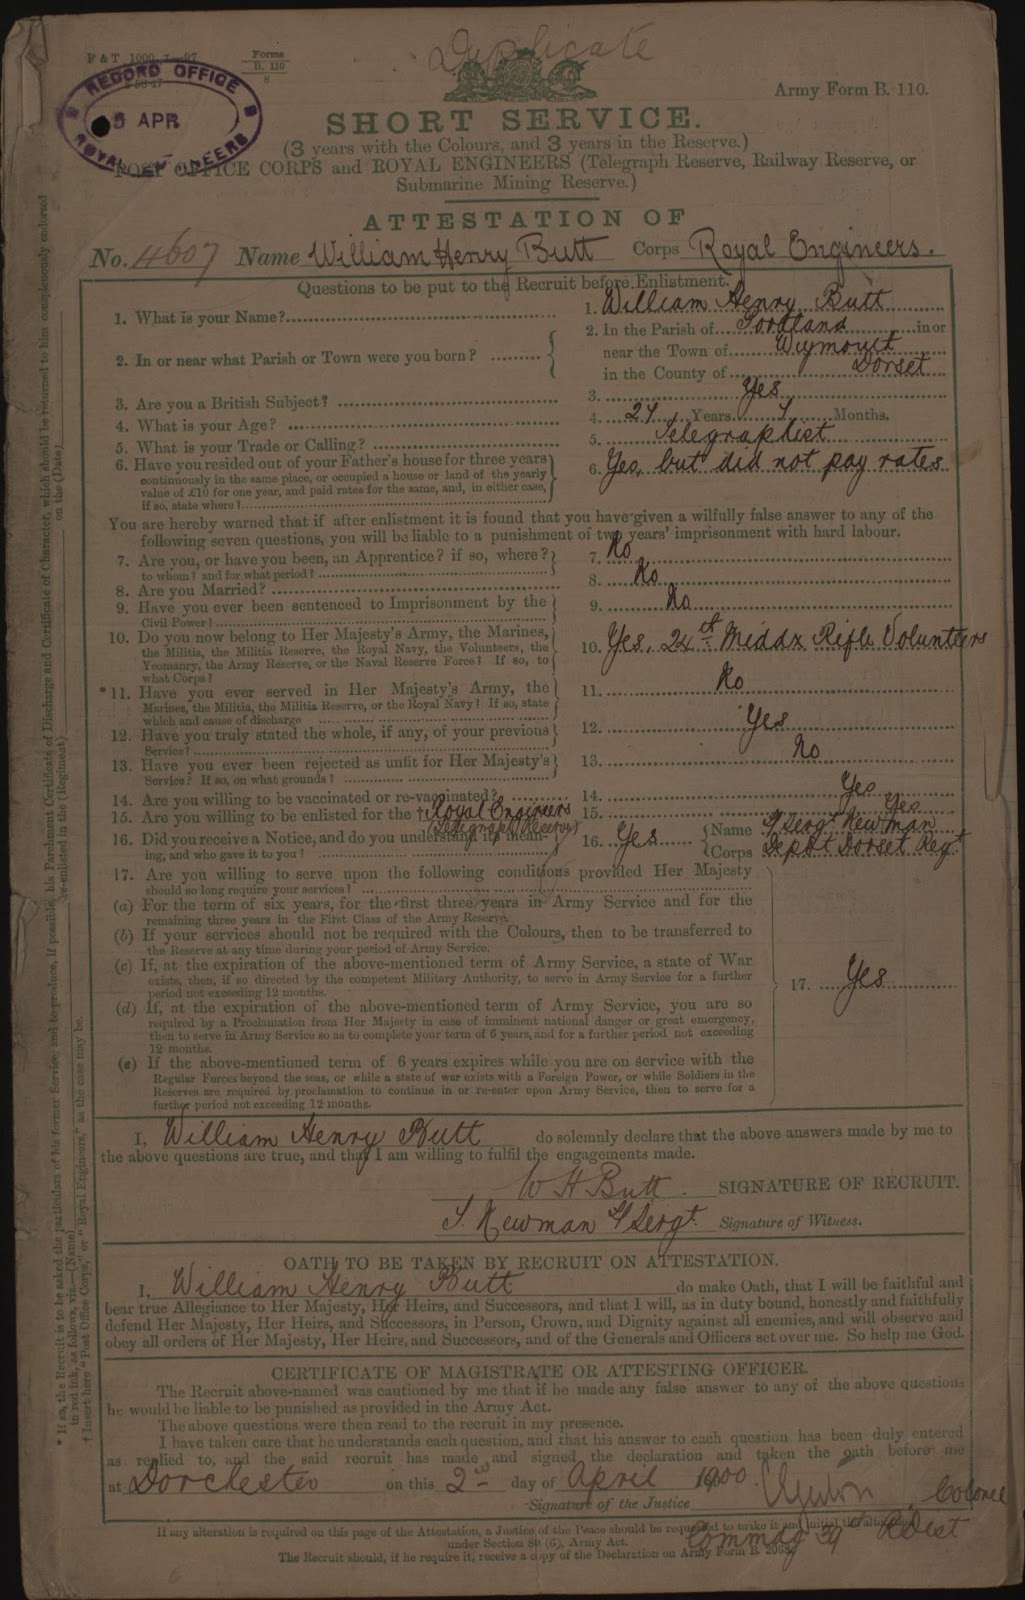 Duplicate
F & T 1000 7—97
Forms
B. 110
8
Army Form B. 110.
RECORD OFFICE
5 APR
ROYAL ENGINEERS
SHORT SERVICE.
(3 years with the Colours, and 3 years in the Reserve.)
POST OFFICE CORPS and ROYAL ENGINEERS (Telegraph Reserve, Railway Reserve, or
Submarine Mining Reserve.)
ATTESTATION OF
No. 4607 Name William Henry Butt Corps Royal Engineers.
Questions to be put to the Recruit before Enlistment.
1. What is your Name? 1. William Henry Butt
2. In or near what Parish or Town were you born? 2. In the Parish of Portland in or
near the Town of Weymouth
in the County of Dorset
3. Are you a British Subject? 3. Yes
4. What is your Age? 4. Years Months.
5. What is your Trade or Calling? 5. Telegraphist
6. Have you resided out of your Father's house for three years
continuously in the same place, or occupied a house or land of the yearly
value of £10 for one year, and paid rates for the same, and, in either case,
if so, state where? 6. Yes, but did not pay rates
You are hereby warned that if after enlistment it is found that you have given a wilfully false answer to any of the
following seven questions, you will be liable to a punishment of two years' imprisonment with hard labour.
7. Are you, or have you been, an Apprentice? if so, where?
to whom? and for what period? 7. No
8. Are you Married? 8. No
9. Have you ever been sentenced to Imprisonment by the
Civil Power? 9. No
10. Do you now belong to Her Majesty's Army, the Marines,
the Militia, the Militia Reserve, the Royal Navy, the Volunteers, the
Yeomanry, the Army Reserve, or the Naval Reserve Force? If so, to
what Corps? 10. Yes, 24th Middx Rifle Volunteers
*11. Have you ever served in Her Majesty's Army, the
Marines, the Militia, the Militia Reserve, or the Royal Navy? If so, state
which and cause of discharge 11. No
12. Have you truly stated the whole, if any, of your previous
Service? 12. Yes
13. Have you ever been rejected as unfit for Her Majesty's
Service? If so, on what grounds? 13. No
14. Are you willing to be vaccinated or re-vaccinated? 14. Yes
15. Are you willing to be enlisted for the † Royal Engineers 15. Yes
(Telegraph Reserve)
16. Did you receive a Notice, and do you understand its mean-
ing, and who gave it to you? 16. Yes Name Sergt Newman
Corps Depôt Dorset Regt
17. Are you willing to serve upon the following conditions provided Her Majesty
should so long require your services?
(a) For the term of six years, for the first three years in Army Service and for the
remaining three years in the First Class of the Army Reserve.
(b) If your services should not be required with the Colours, then to be transferred to
the Reserve at any time during your period of Army Service.
(c) If, at the expiration of the above-mentioned term of Army Service, a state of War
exists, then, if so directed by the competent Military Authority, to serve in Army Service for a further
period not exceeding 12 months.
17. Yes
(d) If, at the expiration of the above-mentioned term of Army Service, you are so
required by a Proclamation from Her Majesty in case of imminent national danger or great emergency,
then to serve in Army Service so as to complete your term of 6 years, and for a further period not exceeding
12 months.
(e) If the above-mentioned term of 6 years expires while you are on service with the
Regular Forces beyond the seas, or while a state of war exists with a Foreign Power, or while Soldiers in the
Reserves are required by proclamation to continue in or re-enter upon Army Service, then to serve for a
further period not exceeding 12 months.
I, William Henry Butt do solemnly declare that the above answers made by me to
the above questions are true, and that I am willing to fulfil the engagements made.
W H Butt. SIGNATURE OF RECRUIT.
Newman Sergt. Signature of Witness.
OATH TO BE TAKEN BY RECRUIT ON ATTESTATION.
I, William Henry Butt do make Oath, that I will be faithful and
bear true Allegiance to Her Majesty, Her Heirs, and Successors, and that I will, as in duty bound, honestly and faithfully
defend Her Majesty, Her Heirs, and Successors, in Person, Crown, and Dignity against all enemies, and will observe and
obey all orders of Her Majesty, Her Heirs, and Successors, and of the Generals and Officers set over me. So help me God.
CERTIFICATE OF MAGISTRATE OR ATTESTING OFFICER.
The Recruit above-named was cautioned by me that if he made any false answer to any of the above questions
he would be liable to be punished as provided in the Army Act.
The above questions were then read to the recruit in my presence.
I have taken care that he understands each question, and that his answer to each question has been duly entered
as replied to, and the said recruit has made and signed the declaration and taken the oath before me
at Dorchester on this 2nd day of April 1900.
Signature of the Justice Colonel
Commdg R Dist
If any alteration is required on this page of the Attestation, a Justice of the Peace should be requested to make it and initial the alteration
under Section 80 (6), Army Act.
The Recruit should, if he require it, receive a copy of the Declaration on Army Form B.
* If so, the Recruit is to be asked the particulars of his former Service, and to produce, if possible, his Parchment Certificate of Discharge and Certificate of Character, which should be returned to him conspicuously endorsed
in red ink, as follows, viz.—(Name) re-enlisted in the (Regiment) on the (Date)
† Insert here "Post Office Corps," or "Royal Engineers," as the case may be.